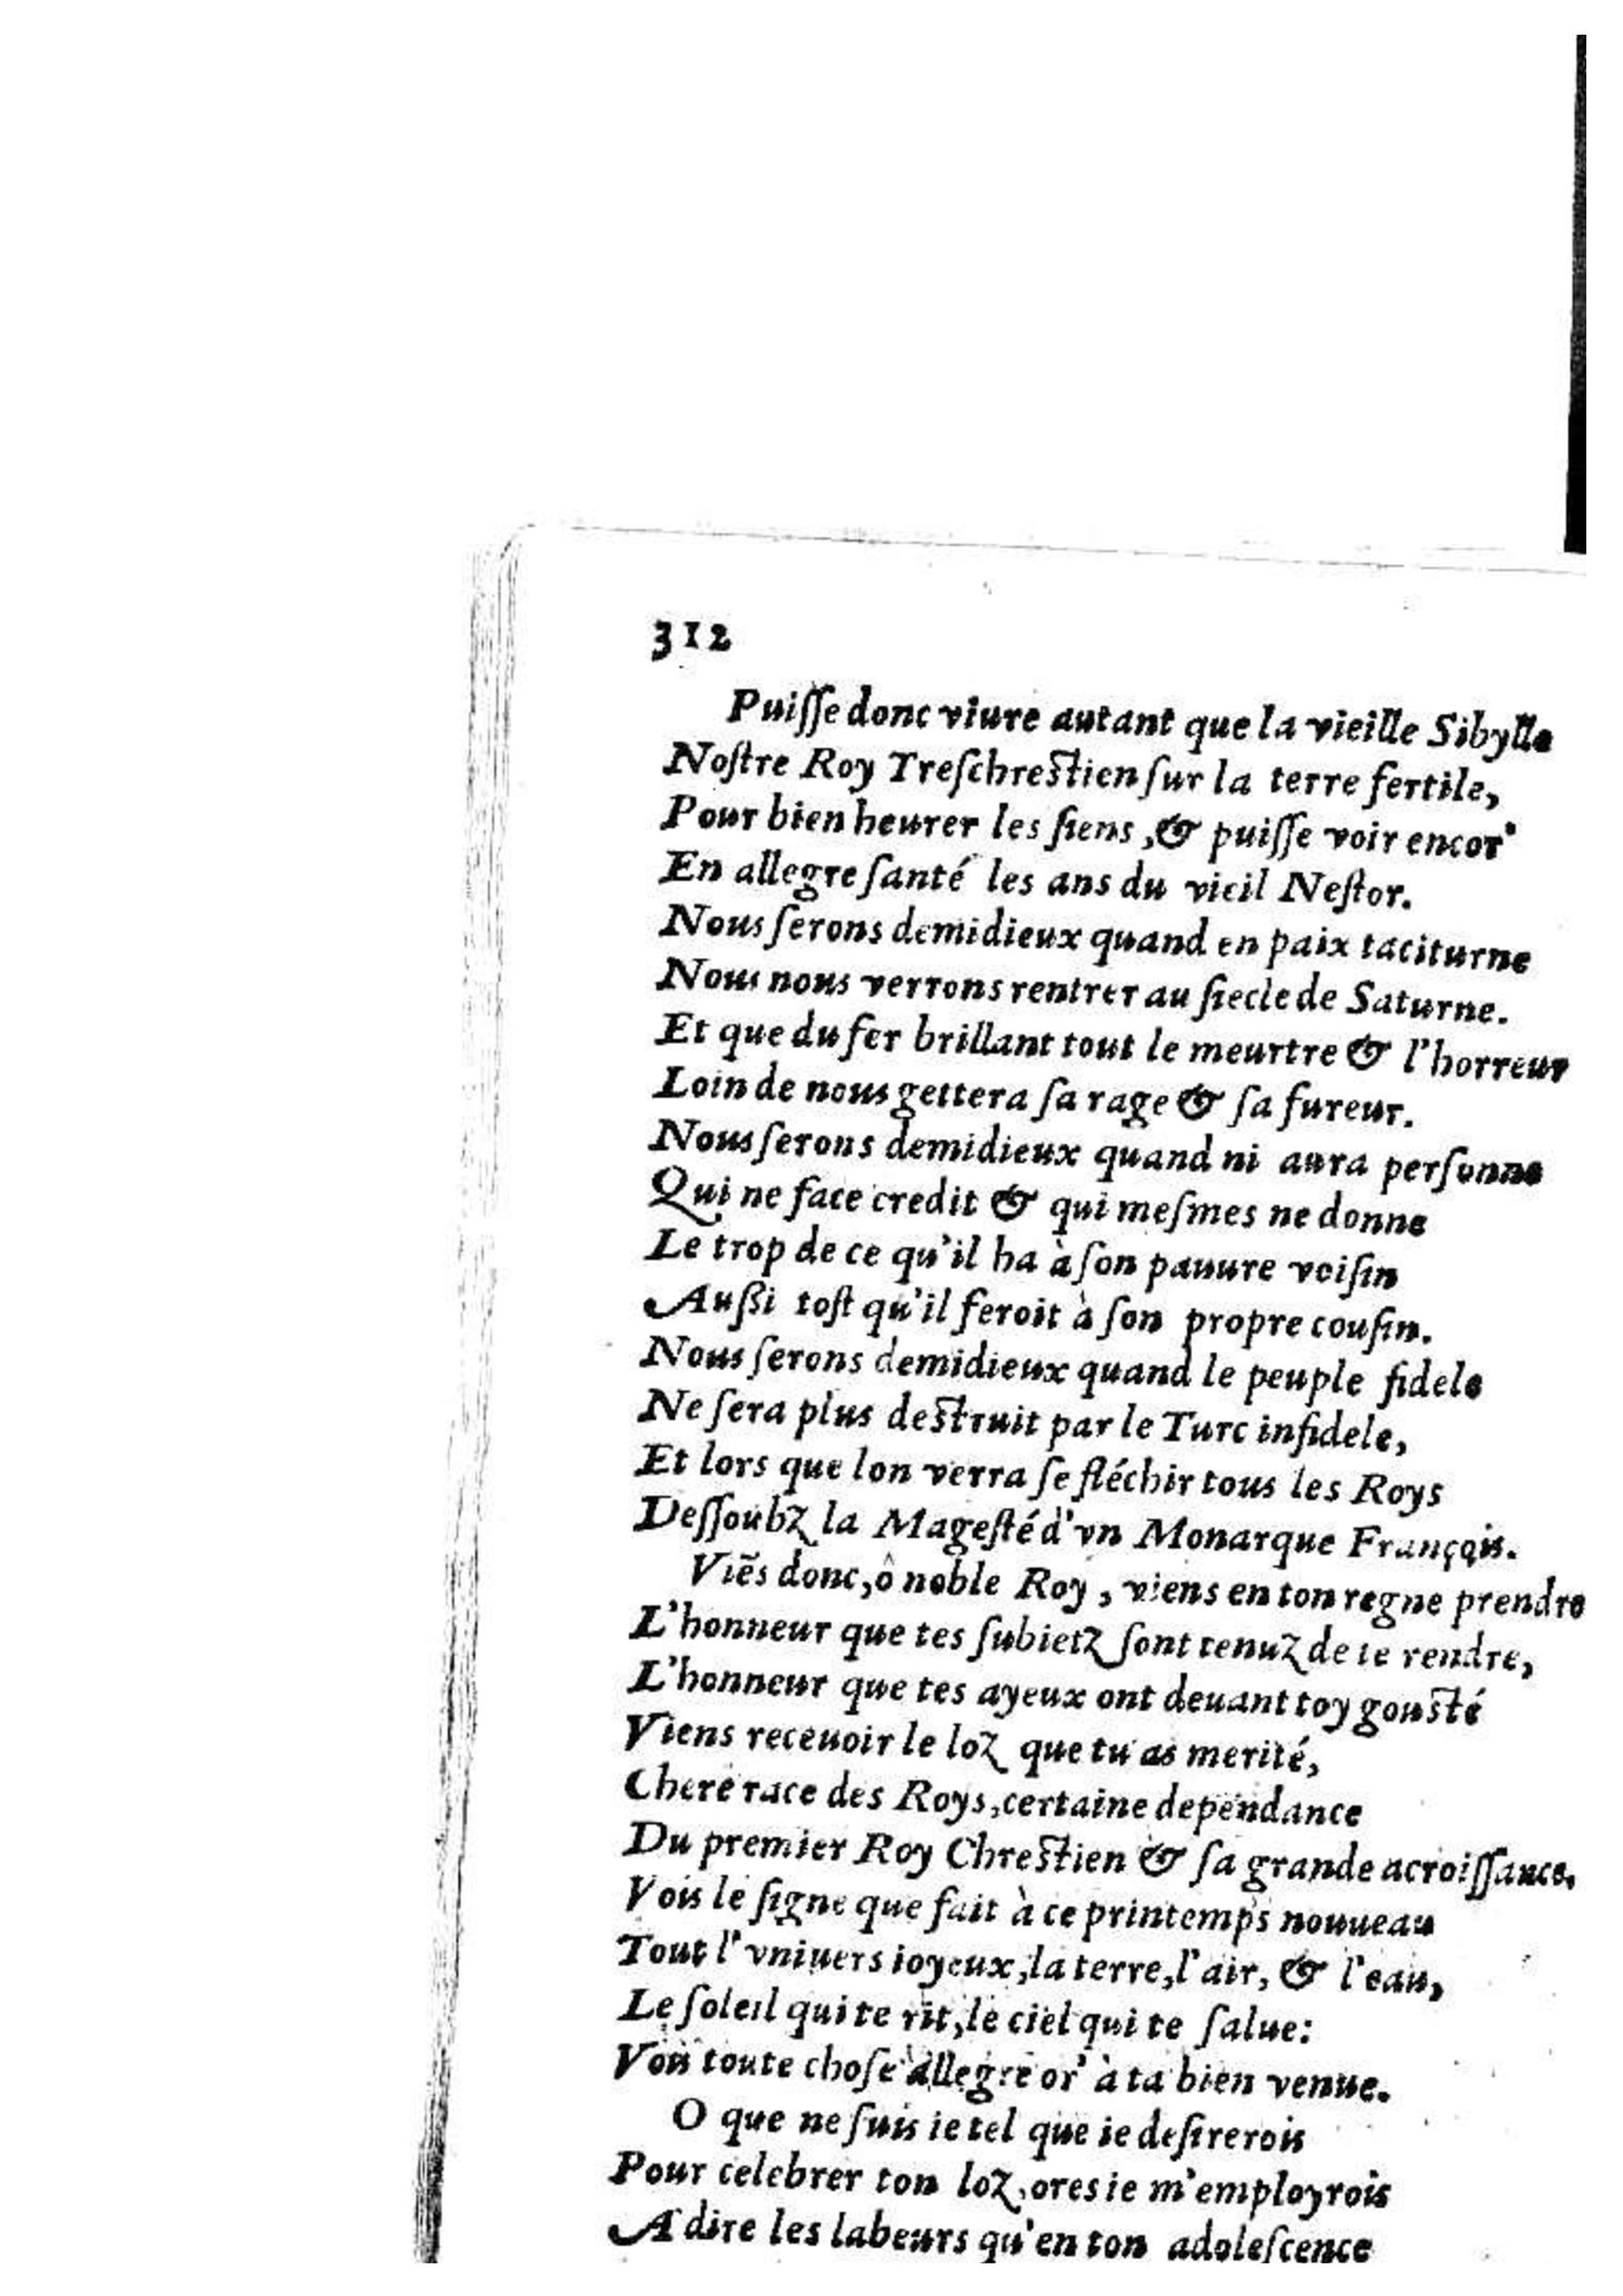 312
Puiſſe donc viure autant que la vieille Sibylle
Noſtre Roy Treſchreſtien ſur la terre fertile,
Pour bien heurer les ſiens, & puiſſe voir encor'
En allegre ſanté les ans du vieil Neſtor.
Nous ſerons demidieux quand en paix taciturne
Nous nous verrons rentrer au ſiecle de Saturne.
Et que du fer brillant tout le meurtre & l'horreur
Loin de nous gettera ſa rage & ſa fureur.
Nous ſerons demidieux quand ni aura perſonne
Qui ne face credit & qui meſmes ne donne
Le trop de ce qu'il ha à ſon pauure voiſin
Auſſi toſt qu'il feroit à ſon propre couſin.
Nous ſerons demidieux quand le peuple fidele
Ne ſera plus deſtruit par le Turc infidele,
Et lors que lon verra ſe fléchir tous les Roys
Deſſoubz la Mageſté d'vn Monarque François.
Viẽs donc, ô noble Roy, viens en ton regne prendre
L'honneur que tes ſubietz ſont tenuz de te rendre,
L'honneur que tes ayeux ont deuant toy gouſté
Viens receuoir le loz que tu as merité,
Chere race des Roys, certaine dependance
Du premier Roy Chreſtien & ſa grande acroiſſance.
Vois le ſigne que fait à ce printemps nouueau
Tout l'vniuers ioyeux, la terre, l'air, & l'eau,
Le ſoleil qui te rit, le ciel qui te ſalue:
Vois toute choſe allegre or' à ta bien venue.
O que ne ſuis ie tel que ie deſirerois
Pour celebrer ton loz, ores ie m'employrois
A dire les labeurs qu'en ton adoleſcence